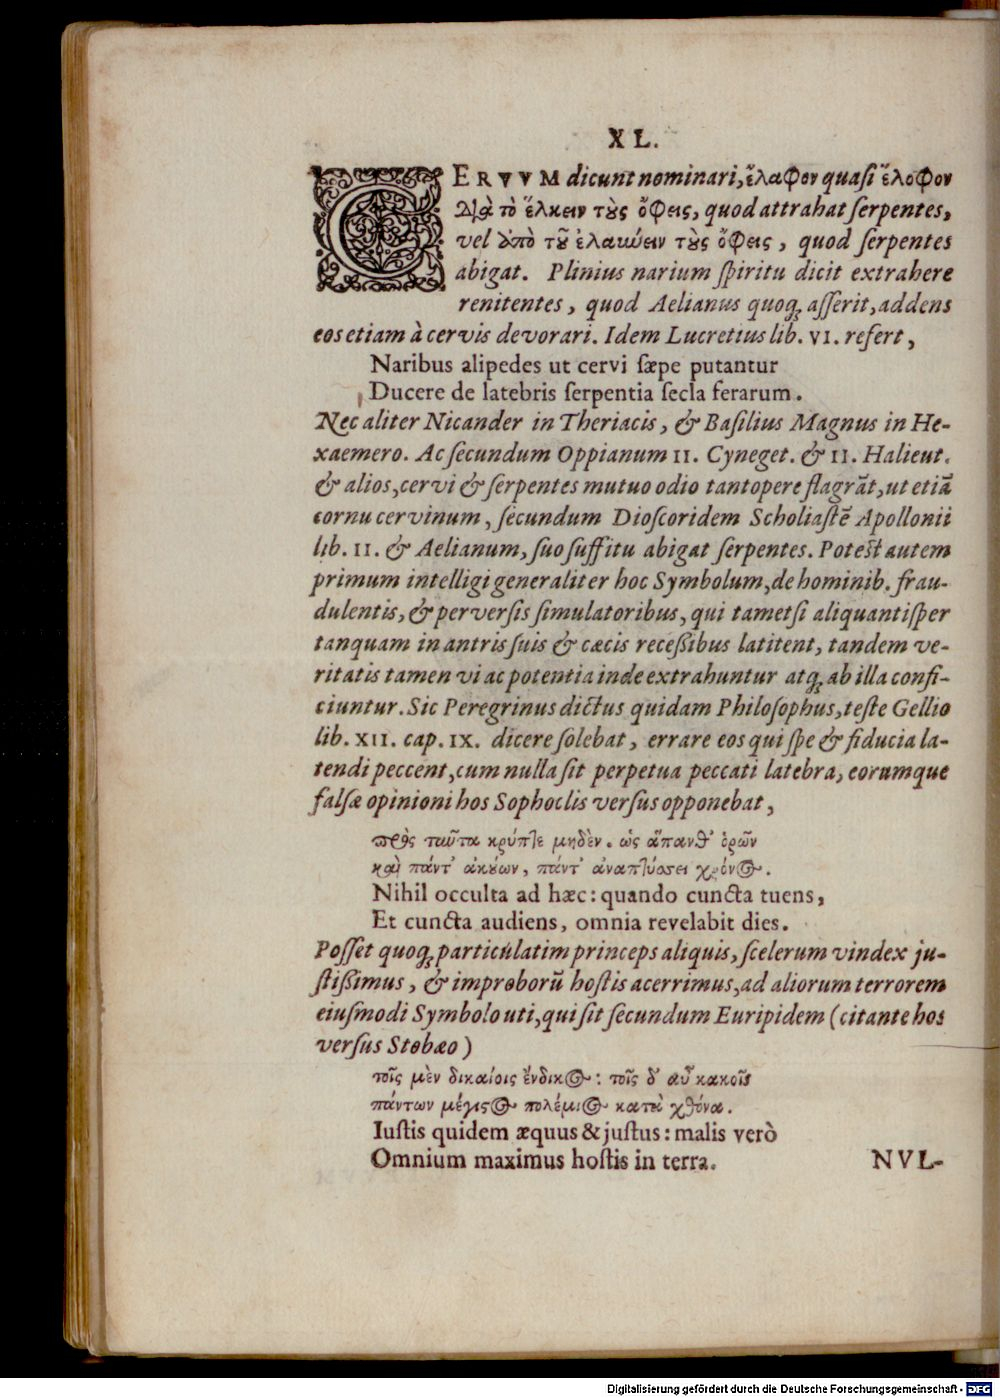 XL.
CERVVM dicunt nominari, ἔλαφον quasi ἔλοφον
Διὰ τὸ ἕλκειν τοὺς ὄφεις, quod attrahat serpentes,
vel ἀπὸ τοῦ ἐλαύνειν τοὺς ὄφεις, quod serpentes
abigat. Plinius narium spiritu dicit extrahere
renitentes, quod Aelianus quoq; asserit, addens
eos etiam à cervis devorari. Idem Lucretius lib. VI. refert,
Naribus alipedes ut cervi sæpe putantur
Ducere de latebris serpentia secla ferarum.
Nec aliter Nicander in Theriacis, & Basilius Magnus in He-
xaemero. Ac secundum Oppianum II. Cyneget. & II. Halieut.
& alios, cervi & serpentes mutuo odio tantopere flagrãt, ut etiã
cornu cervinum, secundum Dioscoridem Scholiastẽ Apollonii
lib. II. & Aelianum, suo suffitu abigat serpentes. Potest autem
primum intelligi generaliter hoc Symbolum, de hominib. frau-
dulentis, & perversis simulatoribus, qui tametsi aliquantisper
tanquam in antris suis & cæcis recessibus latitent, tandem ve-
ritatis tamen vi ac potentia inde extrahuntur atq; ab illa confi-
ciuntur. Sic Peregrinus dictus quidam Philosophus, teste Gellio
lib. XII. cap. IX. dicere solebat, errare eos qui spe & fiducia la-
tendi peccent, cum nulla sit perpetua peccati latebra, eorumque
falsæ opinioni hos Sophoclis versus opponebat,
πρὸς ταῦτα κρύπτε μηδὲν. ὡς ἅπανθ' ὁρῶν
καὶ πάντ' ἀκούων, πάντ' ἀναπτύσσει χρόνος.
Nihil occulta ad hæc: quando cuncta tuens,
Et cuncta audiens, omnia revelabit dies.
Posset quoq; particulatim princeps aliquis, scelerum vindex ju-
stissimus, & improborũ hostis acerrimus, ad aliorum terrorem
eiusmodi Symbolo uti, qui sit secundum Euripidem (citante hos
versus Stobæo)
τοῖς μὲν δικαίοις ἔνδικος: τοῖς δ' αὖ κακοῖς
πάντων μέγιστος πολέμιος κατὰ χθόνα.
Iustis quidem æquus & justus: malis verò
Omnium maximus hostis in terra.
NVL-
Digitalisierung gefördert durch die Deutsche Forschungsgemeinschaft - DFG